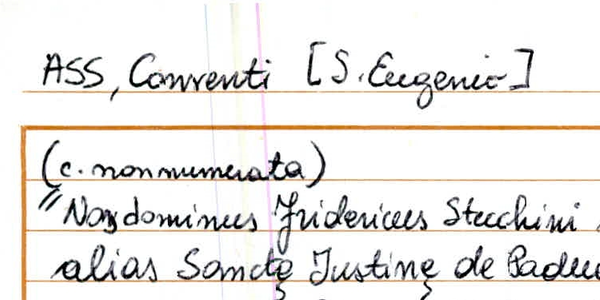 ASS, Conventi [S. Eugenio]
(c. non numerata)
"Nos dominus Fridericus Stecchini
alias Sanctę Iustinę de Padue